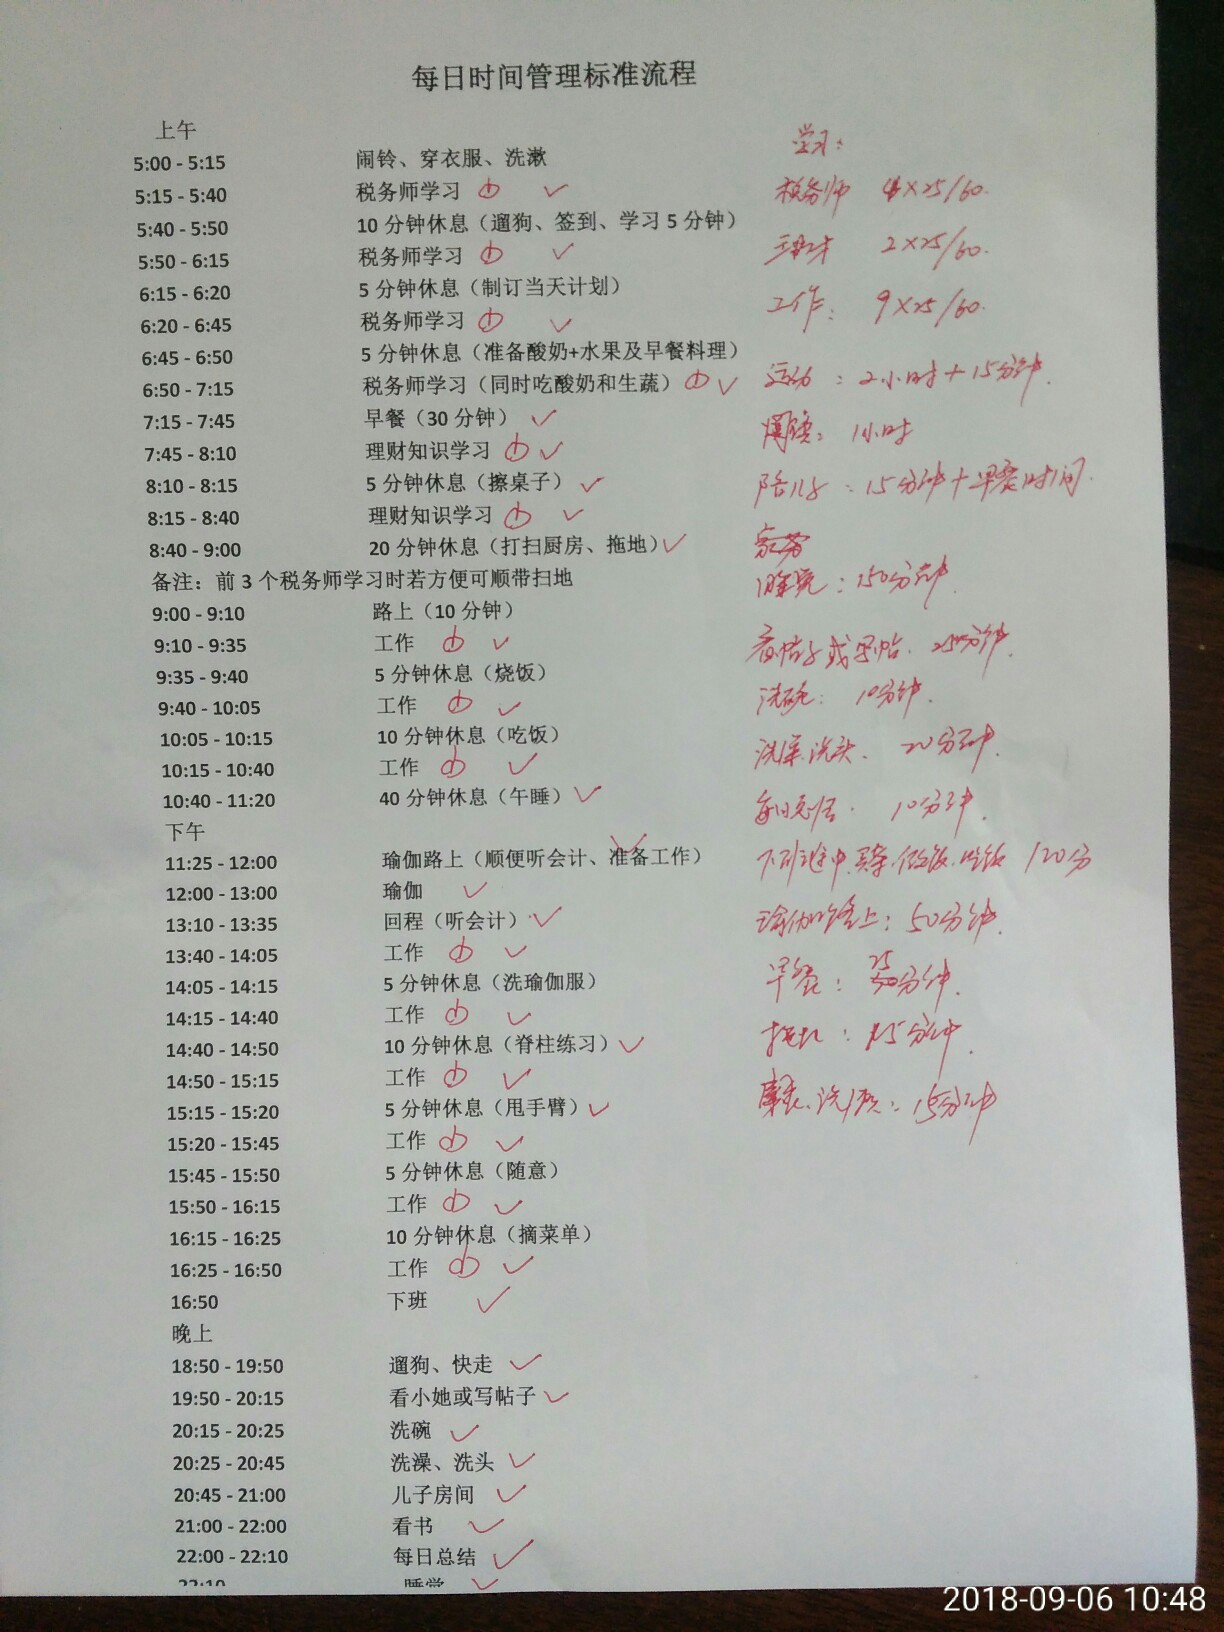 每日时间管理标准流程
上午
5:00 - 5:15 闹铃、穿衣服、洗漱
5:15 - 5:40 税务师学习
5:40 - 5:50 10 分钟休息（遛狗、签到、学习 5 分钟）
5:50 - 6:15 税务师学习
6:15 - 6:20 5 分钟休息（制订当天计划）
6:20 - 6:45 税务师学习
6:45 - 6:50 5 分钟休息（准备酸奶+水果及早餐料理）
6:50 - 7:15 税务师学习（同时吃酸奶和生蔬）
7:15 - 7:45 早餐（30 分钟）
7:45 - 8:10 理财知识学习
8:10 - 8:15 5 分钟休息（擦桌子）
8:15 - 8:40 理财知识学习
8:40 - 9:00 20 分钟休息（打扫厨房、拖地）
备注：前 3 个税务师学习时若方便可顺带扫地
9:00 - 9:10 路上（10 分钟）
9:10 - 9:35 工作
9:35 - 9:40 5 分钟休息（烧饭）
9:40 - 10:05 工作
10:05 - 10:15 10 分钟休息（吃饭）
10:15 - 10:40 工作
10:40 - 11:20 40 分钟休息（午睡）
下午
11:25 - 12:00 瑜伽路上（顺便听会计、准备工作）
12:00 - 13:00 瑜伽
13:10 - 13:35 回程（听会计）
13:40 - 14:05 工作
14:05 - 14:15 5 分钟休息（洗瑜伽服）
14:15 - 14:40 工作
14:40 - 14:50 10 分钟休息（脊柱练习）
14:50 - 15:15 工作
15:15 - 15:20 5 分钟休息（甩手臂）
15:20 - 15:45 工作
15:45 - 15:50 5 分钟休息（随意）
15:50 - 16:15 工作
16:15 - 16:25 10 分钟休息（摘菜单）
16:25 - 16:50 工作
16:50 下班
晚上
18:50 - 19:50 遛狗、快走
19:50 - 20:15 看小她或写帖子
20:15 - 20:25 洗碗
20:25 - 20:45 洗澡、洗头
20:45 - 21:00 儿子房间
21:00 - 22:00 看书
22:00 - 22:10 每日总结
22:10 睡觉
学习：
税务师 4×25/60.
理财 2×25/60.
工作： 9×25/60.
运动：2小时+15分钟.
阅读：1小时
陪儿子：15分钟+早餐时间.
家劳
睡觉：150分钟.
看帖子或写帖. 25分钟.
洗碗：10分钟.
洗澡.洗头. 20分钟.
每日总结. 10分钟.
下班途中.买菜.做饭.吃饭 120分
瑜伽路上：50分钟.
早餐：25分钟.
拖地：15分钟.
洗
15分钟
2018-09-06 10:48